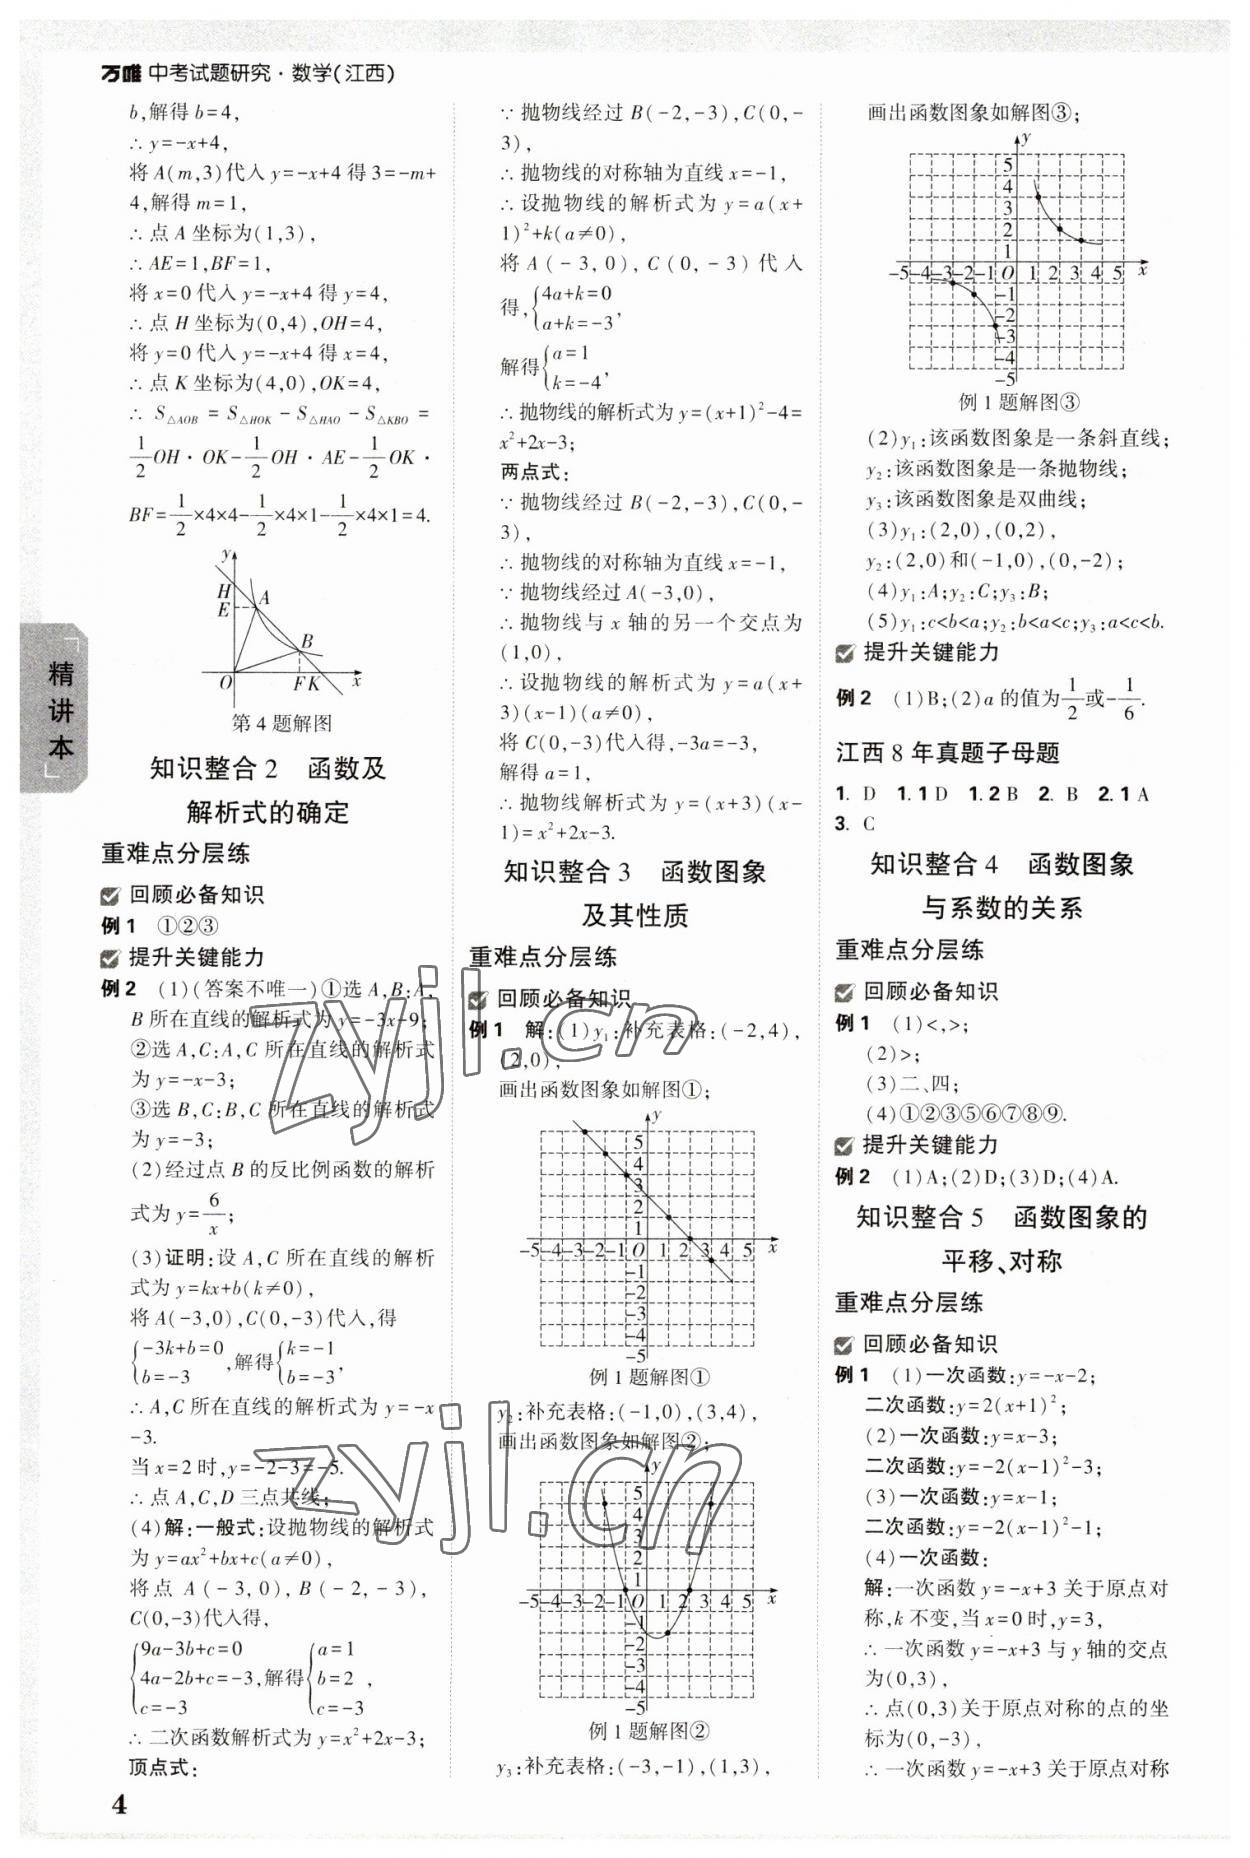 万唯 中考试题研究·数学(江西)
b,解得b=4,
∴y=-x+4,
将A(m,3)代入y=-x+4得3=-m+
4,解得m=1,
∴点A坐标为(1,3),
∴AE=1,BF=1,
将x=0代入y=-x+4得y=4,
∴点H坐标为(0,4),OH=4,
将y=0代入y=-x+4得x=4,
∴点K坐标为(4,0),OK=4,
∴ S△AOB = S△HOK - S△HAO - S△KBO =
1/2 OH·OK- 1/2 OH·AE- 1/2 OK·
BF= 1/2 ×4×4- 1/2 ×4×1- 1/2 ×4×1=4.
y
H
E
A
B
O
F K
x
第4题解图
知识整合2 函数及
解析式的确定
重难点分层练
回顾必备知识
例1 ①②③
提升关键能力
例2 (1)(答案不唯一)①选A,B:A,
B所在直线的解析式为y=-3x-9;
②选A,C:A,C所在直线的解析式
为y=-x-3;
③选B,C:B,C所在直线的解析式
为y=-3;
(2)经过点B的反比例函数的解析
式为y= 6/x ;
(3)证明:设A,C所在直线的解析
式为y=kx+b(k≠0),
将A(-3,0),C(0,-3)代入,得
{-3k+b=0 b=-3 ,解得{k=-1 b=-3 ,
∴A,C所在直线的解析式为y=-x
-3.
当x=2时,y=-2-3=-5.
∴点A,C,D三点共线;
(4)解:一般式:设抛物线的解析式
为y=ax²+bx+c(a≠0),
将点A(-3,0),B(-2,-3),
C(0,-3)代入得,
{9a-3b+c=0 4a-2b+c=-3 c=-3 ,解得{a=1 b=2 c=-3 ,
∴二次函数解析式为y=x²+2x-3;
顶点式:
∵抛物线经过B(-2,-3),C(0,-
3),
∴抛物线的对称轴为直线x=-1,
∴设抛物线的解析式为y=a(x+
1)²+k(a≠0),
将A(-3,0),C(0,-3)代入
得,{4a+k=0 a+k=-3 ,
解得{a=1 k=-4 ,
∴抛物线的解析式为y=(x+1)²-4=
x²+2x-3;
两点式:
∵抛物线经过B(-2,-3),C(0,-
3),
∴抛物线的对称轴为直线x=-1,
∵抛物线经过A(-3,0),
∴抛物线与x轴的另一个交点为
(1,0),
∴设抛物线的解析式为y=a(x+
3)(x-1)(a≠0),
将C(0,-3)代入得,-3a=-3,
解得a=1,
∴抛物线解析式为y=(x+3)(x-
1)=x²+2x-3.
知识整合3 函数图象
及其性质
重难点分层练
回顾必备知识
例1 解:(1)y₁:补充表格:(-2,4),
(2,0),
画出函数图象如解图①;
y
5
4
3
2
1
-5-4-3-2-1 O 1 2 3 4 5 x
-1
-2
-3
-4
-5
例1题解图①
y₂:补充表格:(-1,0),(3,4),
画出函数图象如解图②;
y
5
4
3
2
1
-5-4-3-2-1 O 1 2 3 4 5 x
-1
-2
-3
-4
-5
例1题解图②
y₃:补充表格:(-3,-1),(1,3),
画出函数图象如解图③;
y
5
4
3
2
1
-5-4-3-2-1 O 1 2 3 4 5 x
-1
-2
-3
-4
-5
例1题解图③
(2)y₁:该函数图象是一条斜直线;
y₂:该函数图象是一条抛物线;
y₃:该函数图象是双曲线;
(3)y₁:(2,0),(0,2),
y₂:(2,0)和(-1,0),(0,-2);
(4)y₁:A;y₂:C;y₃:B;
(5)y₁:c<b<a;y₂:b<a<c;y₃:a<c<b.
提升关键能力
例2 (1)B;(2)a的值为 1/2 或- 1/6 .
江西8年真题子母题
1. D 1.1 D 1.2 B 2. B 2.1 A
3. C
知识整合4 函数图象
与系数的关系
重难点分层练
回顾必备知识
例1 (1)<,>;
(2)>;
(3)二、四;
(4)①②③⑤⑥⑦⑧⑨.
提升关键能力
例2 (1)A;(2)D;(3)D;(4)A.
知识整合5 函数图象的
平移、对称
重难点分层练
回顾必备知识
例1 (1)一次函数:y=-x-2;
二次函数:y=2(x+1)²;
(2)一次函数:y=x-3;
二次函数:y=-2(x-1)²-3;
(3)一次函数:y=x-1;
二次函数:y=-2(x-1)²-1;
(4)一次函数:
解:一次函数y=-x+3关于原点对
称,k不变,当x=0时,y=3,
∴一次函数y=-x+3与y轴的交点
为(0,3),
∴点(0,3)关于原点对称的点的坐
标为(0,-3),
∴一次函数y=-x+3关于原点对称
精讲本
4
zyjl.cn
zyjl.cn